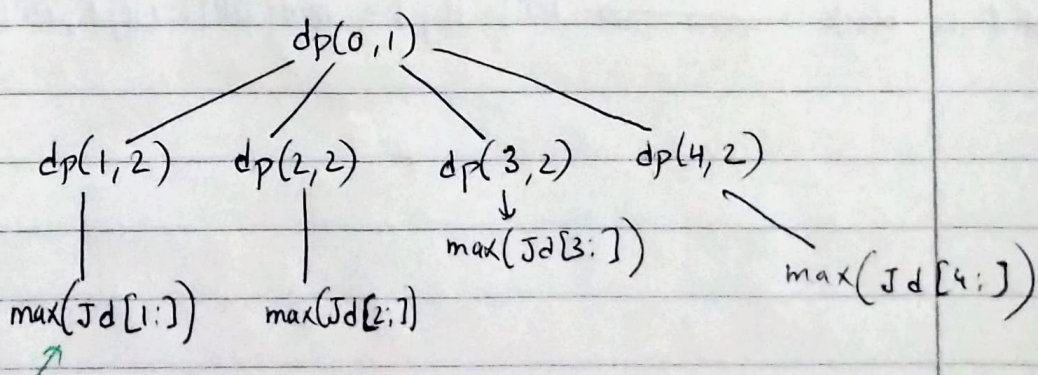 dp(0,1)
dp(1,2) dp(2,2) dp(3,2) dp(4,2)
max(Jd[3:])
max(Jd[4:])
max(Jd[1:]) max(Jd[2:])